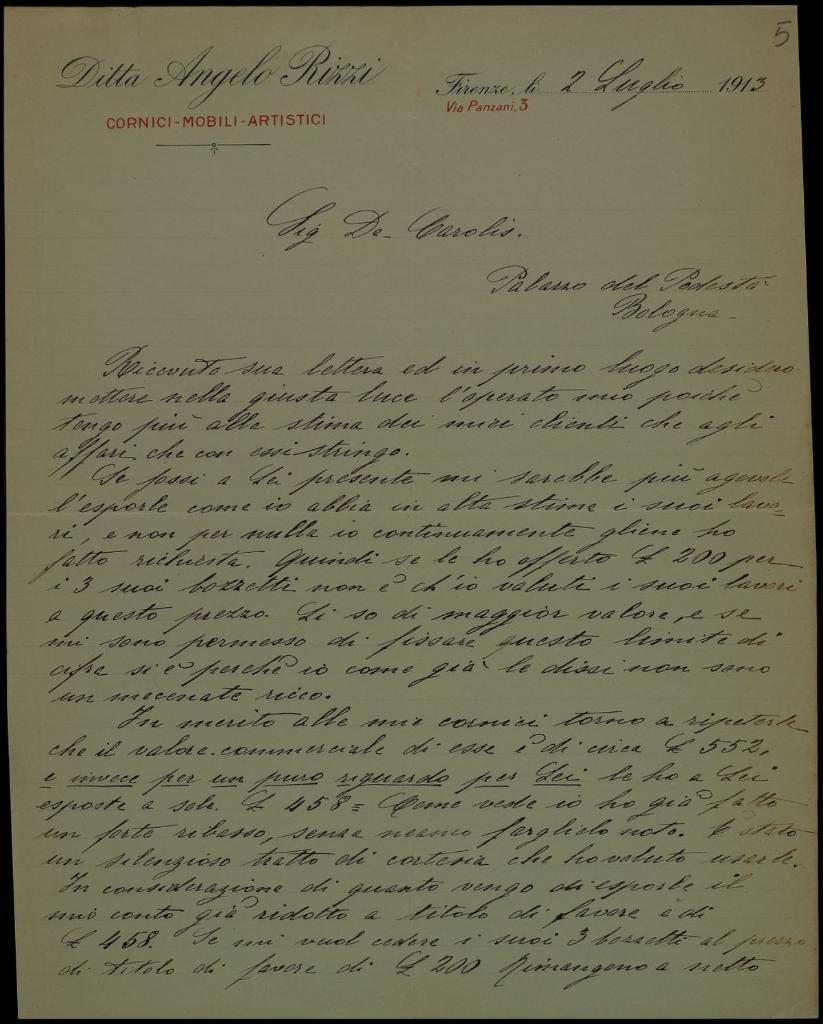 5
Ditta Angelo Rizzi
CORNICI-MOBILI-ARTISTICI
Firenze, li 2 Luglio 1913
Via Panzani, 3
Sig De-Carolis.
Palazzo del Podestà
Bologna-
Ricevuto sua lettera ed in primo luogo desidero
mettere nella giusta luce l'operato mio poichè
tengo più alla stima dei miei clienti che agli
affari che con essi stringo.
Se fossi a Lei presente mi sarebbe più agevole
l'esporle come io abbia in alta stima i suoi lavo=
ri, e non per nulla io continuamente gliene ho
fatto richiesta. Quindi se le ho offerto £ 200 per
i 3 suoi bozzetti non è ch'io valuti i suoi lavori
a questo prezzo. Li so di maggior valore, e se
mi sono permesso di fissare questo limite di
cifra si è perchè io come già le dissi non sono
un mecenate ricco.
In merito alle mie cornici torno a ripeterle
che il valore commerciale di esse è di circa £ 552,
e invece per un puro riguardo per Lei le ho a Lei
esposte a sole £ 458 = Come vede io ho già fatto
un forte ribasso, senza neanco farglielo noto. È stato
un silenzioso tratto di cortesia che ho voluto usarle.
In considerazione di quanto vengo di esporle il
mio conto già ridotto a titolo di favore è di
£ 458. Se mi vuol cedere i suoi 3 bozzetti al prezzo
di titolo di favore di £ 200 Rimangono a netto